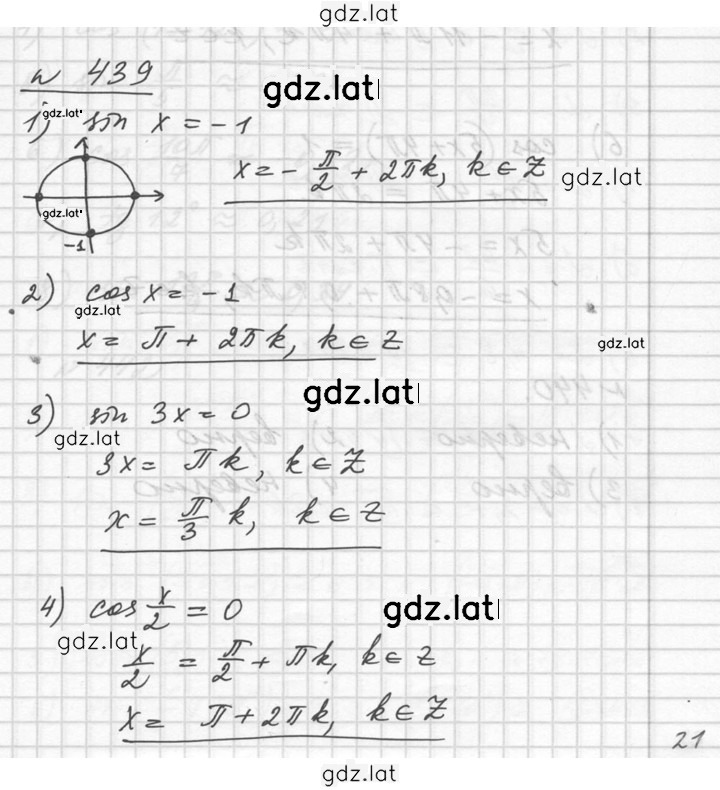 gdz.lat
№ 439
gdz.lat
1) sin x = -1
gdz.lat
x = - π/2 + 2πk, k ∈ Z
gdz.lat
gdz.lat
-1
2) cos x = -1
gdz.lat
x = π + 2πk, k ∈ Z
gdz.lat
gdz.lat
3) sin 3x = 0
gdz.lat
3x = πk, k ∈ Z
x = π/3 k, k ∈ Z
4) cos x/2 = 0
gdz.lat
gdz.lat
x/2 = π/2 + πk, k ∈ Z
x = π + 2πk, k ∈ Z
21
gdz.lat